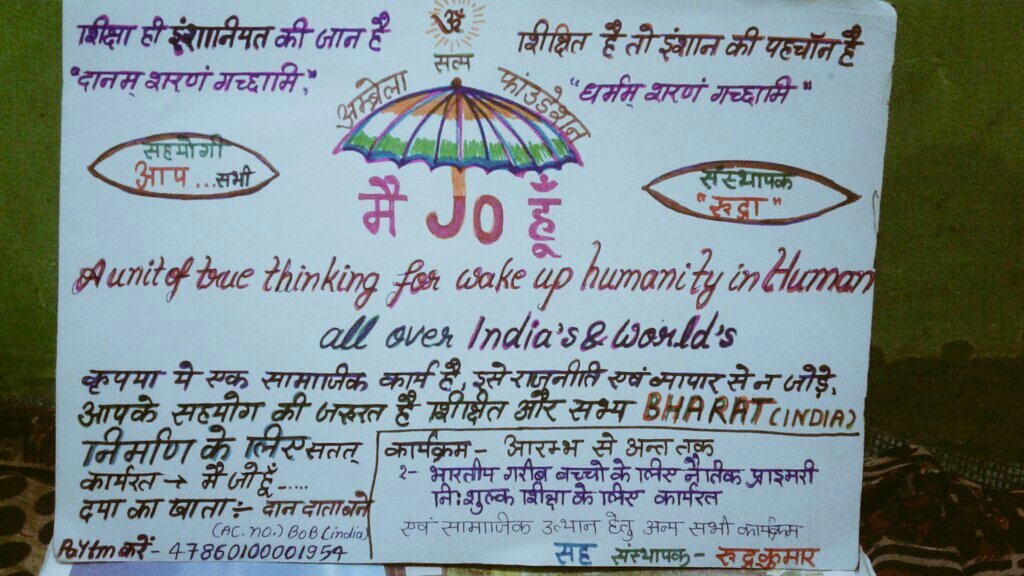 शिक्षा ही इंशानियत की जान है
ॐ
शिक्षित है तो इंशान की पहचॉन है
"दानम् शरणं गच्छामि."
सत्य
"धर्मम् शरणं गच्छामि"
अम्ब्रेला फांउडेशन
सहयोगी
आप ...सभी
संस्थापक
"रुद्रा"
मै JO हूँ
A unit of true thinking for wake up humanity in Human
all over India's & World's
कृपया ये एक सामाजिक कार्य है, इसे राजनीति एवं व्यापार से न जोड़े,
आपके सहयोग की जरूरत है शिक्षित और सभ्य BHARAT (INDIA)
निर्माण के लिए सतत्
कार्यरत → मै जो हूँ .....
दया का खाता :- दान दाता बने
(AC. no.) BoB (india)
PayTm करें - 47860100001954
कार्यक्रम - आरम्भ से अन्त तक
१- भारतीय गरीब बच्चो के लिए नैतिक प्राइमरी
नि:शुल्क शिक्षा के लिए कार्यरत
एवं सामाजिक उत्थान हेतु अन्य सभी कार्यक्रम
सह संस्थापक - रुद्रकुमार